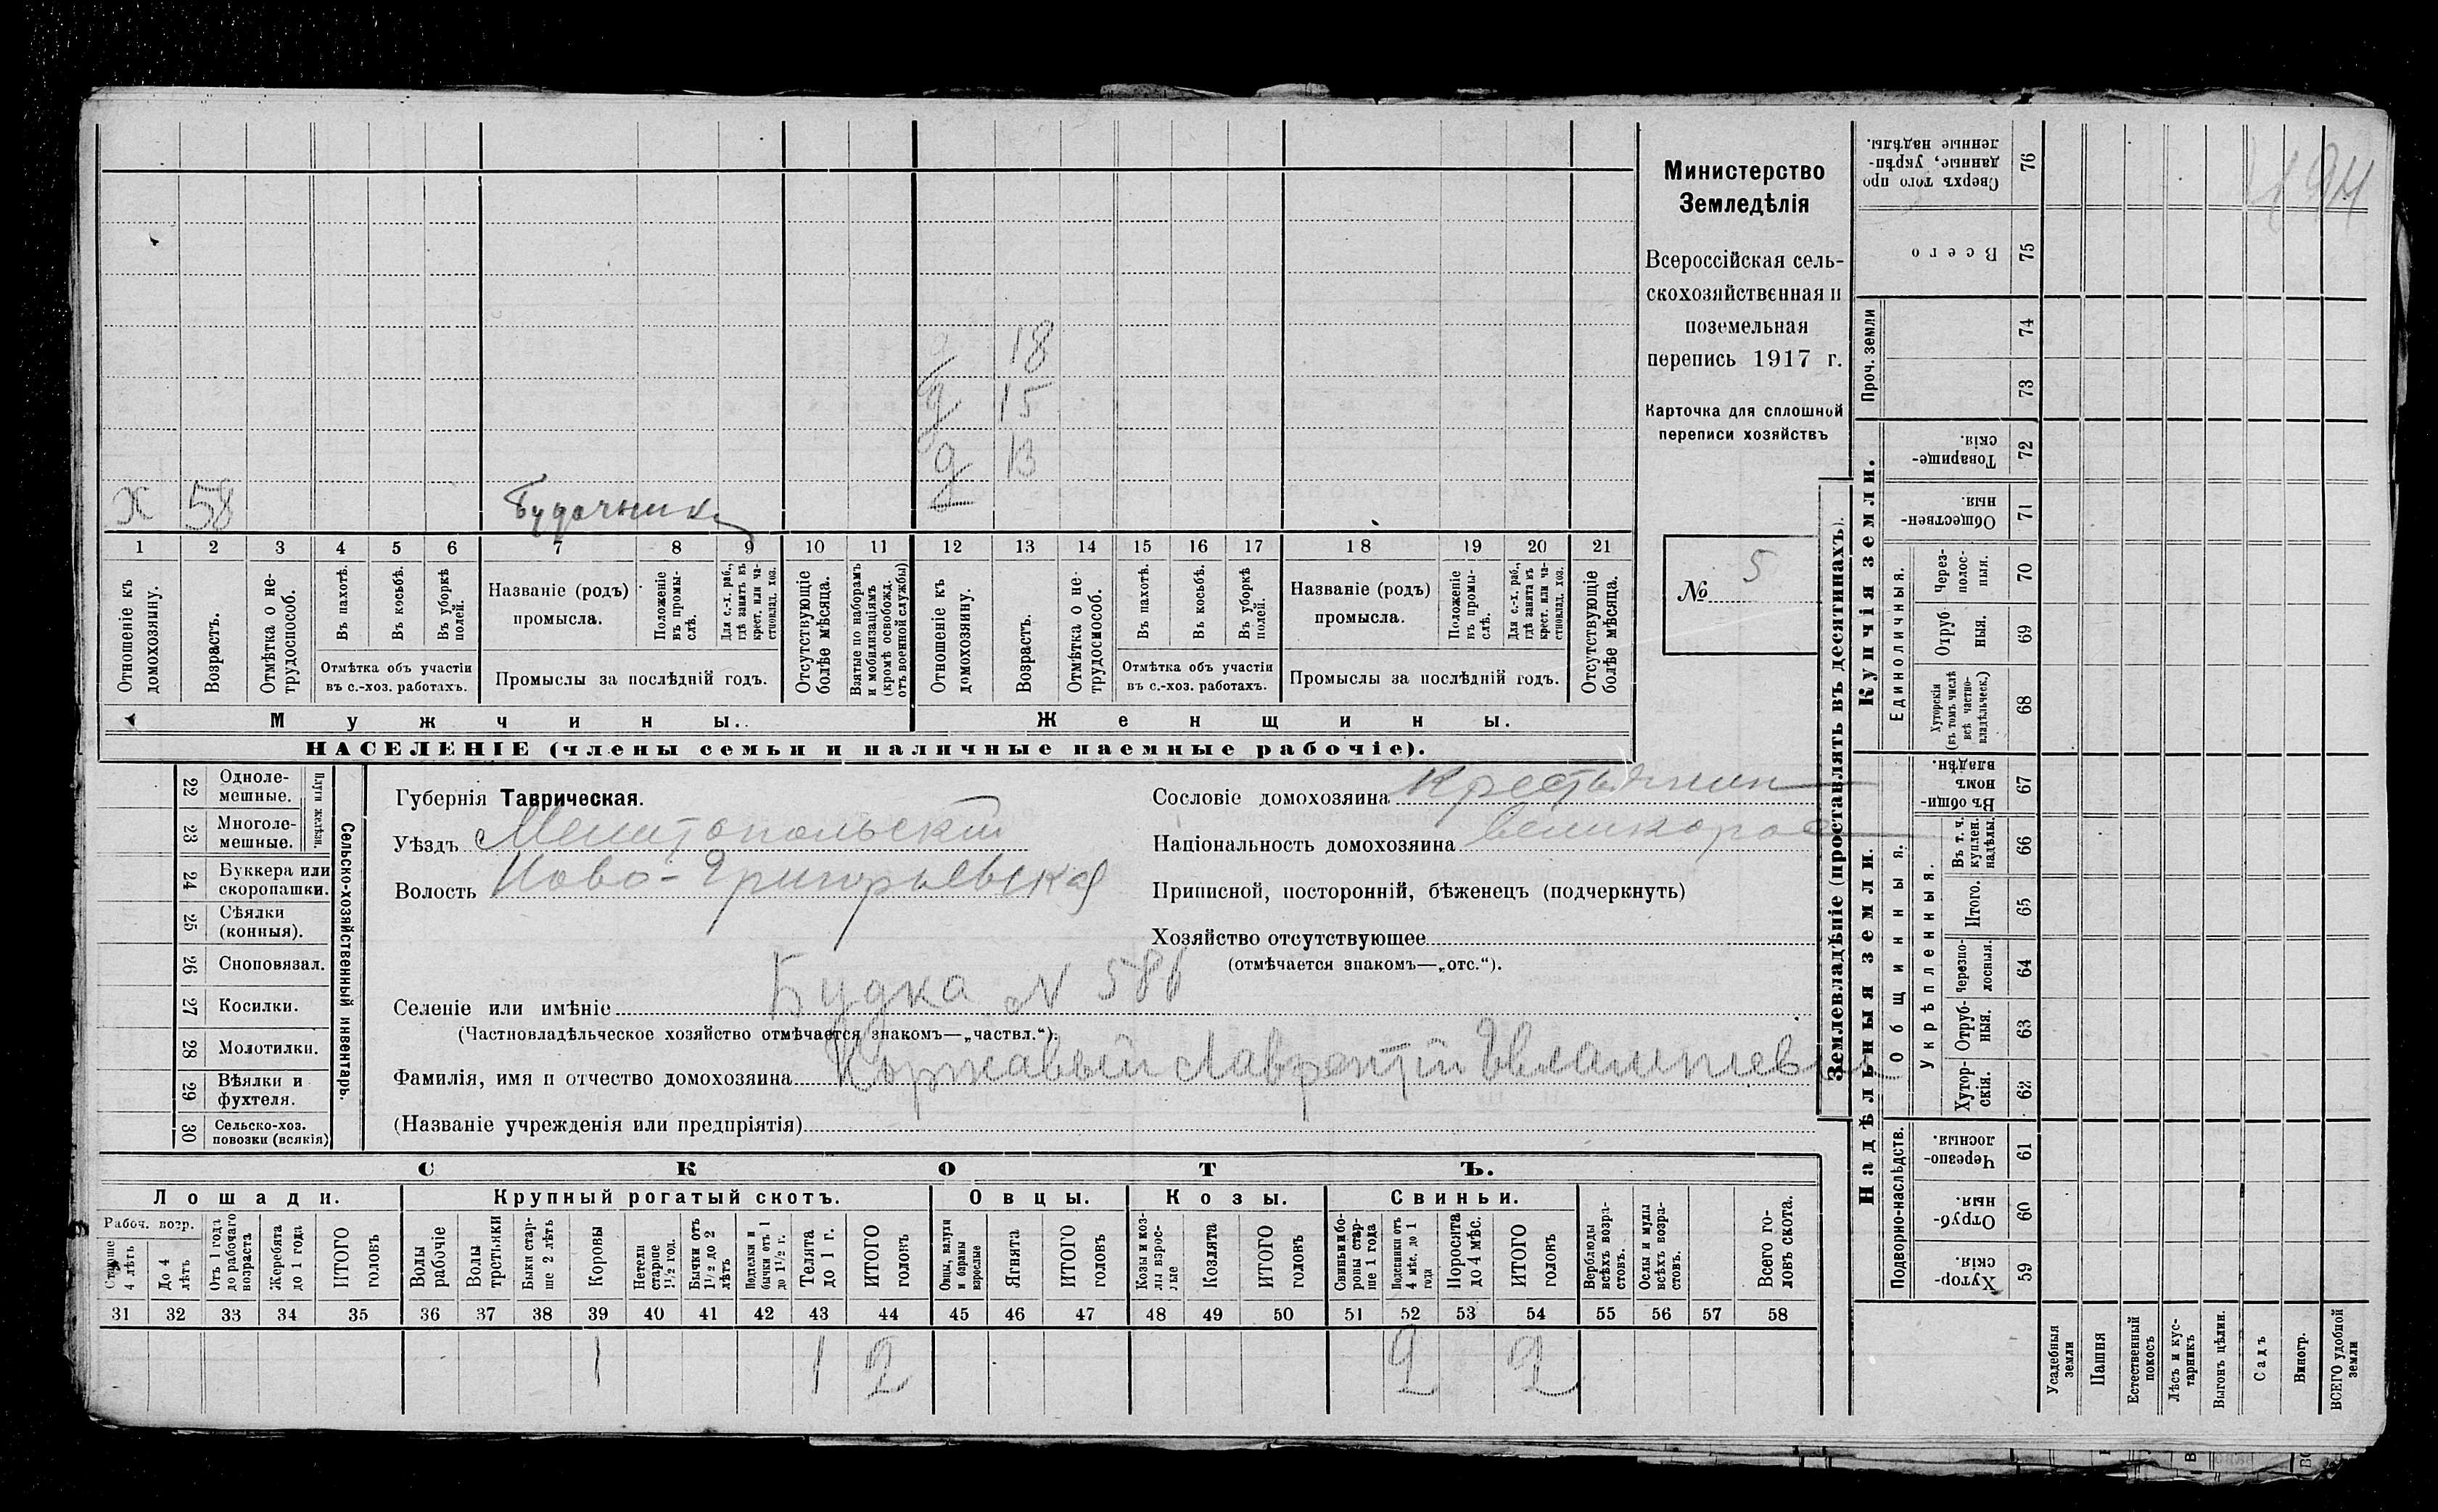 194
Министерство
Земледѣлія
Всероссійская сель-
скохозяйственная и
поземельная
перепись 1917 г.
Карточка для сплошной
переписи хозяйствъ
№ 5
18
д 15
д 13
х 58 Будочникъ
1 2 3 4 5 6 7 8 9 10 11 12 13 14 15 16 17 18 19 20 21
Отношеніе къ домохозяину.
Возрастъ.
Отмѣтка о не-
трудоспособ.
Въ пахотѣ.
Въ косьбѣ.
Въ уборкѣ
полей.
Отмѣтка объ участіи
въ с.-хоз. работахъ.
Названіе (родъ)
промысла.
Положеніе
въ промы-
слѣ.
Для с.-х. раб.,
гдѣ занятъ въ
крест. или ча-
стновлад. хоз.
Промыслы за послѣдній годъ.
Отсутствующіе
болѣе мѣсяца.
Взятые по наборамъ
и мобилизаціямъ
(кромѣ освобожд.
отъ военной службы)
Отношеніе къ
домохозяину.
Возрастъ.
Отмѣтка о не-
трудоспособ.
Въ пахотѣ.
Въ косьбѣ.
Въ уборкѣ
полей.
Отмѣтка объ участіи
въ с.-хоз. работахъ.
Названіе (родъ)
промысла.
Положеніе
въ промы-
слѣ.
Для с.-х. раб.,
гдѣ занята въ
крест. или ча-
стновлад. хоз.
Промыслы за послѣдній годъ.
Отсутствующіе
болѣе мѣсяца.
Мужчины. Женщины.
НАСЕЛЕНІЕ (члены семьи и наличные наемные рабочіе).
Сельско-хозяйственный инвентарь.
Плуги желѣзн.
22 Одноле-
мешные.
23 Многоле-
мешные.
24 Буккера или
скоропашки.
25 Сѣялки
(конныя).
26 Сноповязал.
27 Косилки.
28 Молотилки.
29 Вѣялки и
фухтеля.
30 Сельско-хоз.
повозки (всякія)
Губернія Таврическая.
Уѣздъ Мелитопольскій
Волость Ново-Григорьевская
Сословіе домохозяина Крестьянин
Національность домохозяина великорос
Приписной, посторонній, бѣженецъ (подчеркнуть)
Хозяйство отсутствующее
(отмѣчается знакомъ—„отс.“).
Селеніе или имѣніе Будка N 586
(Частновладѣльческое хозяйство отмѣчается знакомъ—„частвл.“).
Фамилія, имя и отчество домохозяина Коржавый Лаврентій Евлампіев
(Названіе учрежденія или предпріятія)
СКОТЪ.
Лошади. Крупный рогатый скотъ. Овцы. Козы. Свиньи.
Рабоч. возр.
Старше
4 лѣтъ
До 4
лѣтъ
Отъ 1 года
до рабочаго
возраста
Жеребята
до 1 года
ИТОГО
головъ
Волы
рабочіе
Волы
третьяки
Быки стар-
ше 2 лѣтъ
Коровы
Нетели
старше
1½ год.
Бычки отъ
1½ до 2
лѣтъ
Подтелки и
бычки отъ 1
до 1½ г.
Телята
до 1 г.
ИТОГО
головъ
Овцы, валухи
и бараны
взрослые
Ягнята
ИТОГО
головъ
Козы и коз-
лы взрос-
лые
Козлята
ИТОГО
головъ
Свиньи и бо-
ровы стар-
ше 1 года
Подсвинки отъ
4 мѣс. до 1
года
Поросята
до 4 мѣс.
ИТОГО
головъ
Верблюды
всѣхъ возра-
стовъ.
Ослы и мулы
всѣхъ возра-
стовъ.
Всего го-
ловъ скота.
31 32 33 34 35 36 37 38 39 40 41 42 43 44 45 46 47 48 49 50 51 52 53 54 55 56 57 58
1 1 2 2 2
Землевладѣніе (проставлять въ десятинахъ).
Купчія земли.
Надѣльныя земли.
Сверхъ того про
данные, укрѣп-
ленные надѣлы. 76
Всего 75
Проч. земли
74
73
Товарище-
скія. 72
Обществен-
ныя. 71
Единоличныя.
Через-
полос-
ныя. 70
Отруб
ныя. 69
Хуторскія
(въ томъ числѣ
всѣ частно-
владѣльческ.) 68
Общинныя.
Въ общи-
номъ
владѣн. 67
Укрѣпленныя.
Въ т. ч.
куплен.
надѣлы. 66
Итого. 65
Черезпо-
лосныя. 64
Отруб-
ныя. 63
Хутор-
скія. 62
Подворно-наслѣдств.
Черезпо-
лосныя. 61
Отруб-
ныя. 60
Хутор-
скія. 59
Усадебныя
земли
Пашня
Естественный
покосъ
Лѣсъ и кус-
тарникъ
Выгонъ цѣлин.
Садъ
Виногр.
ВСЕГО удобной
земли